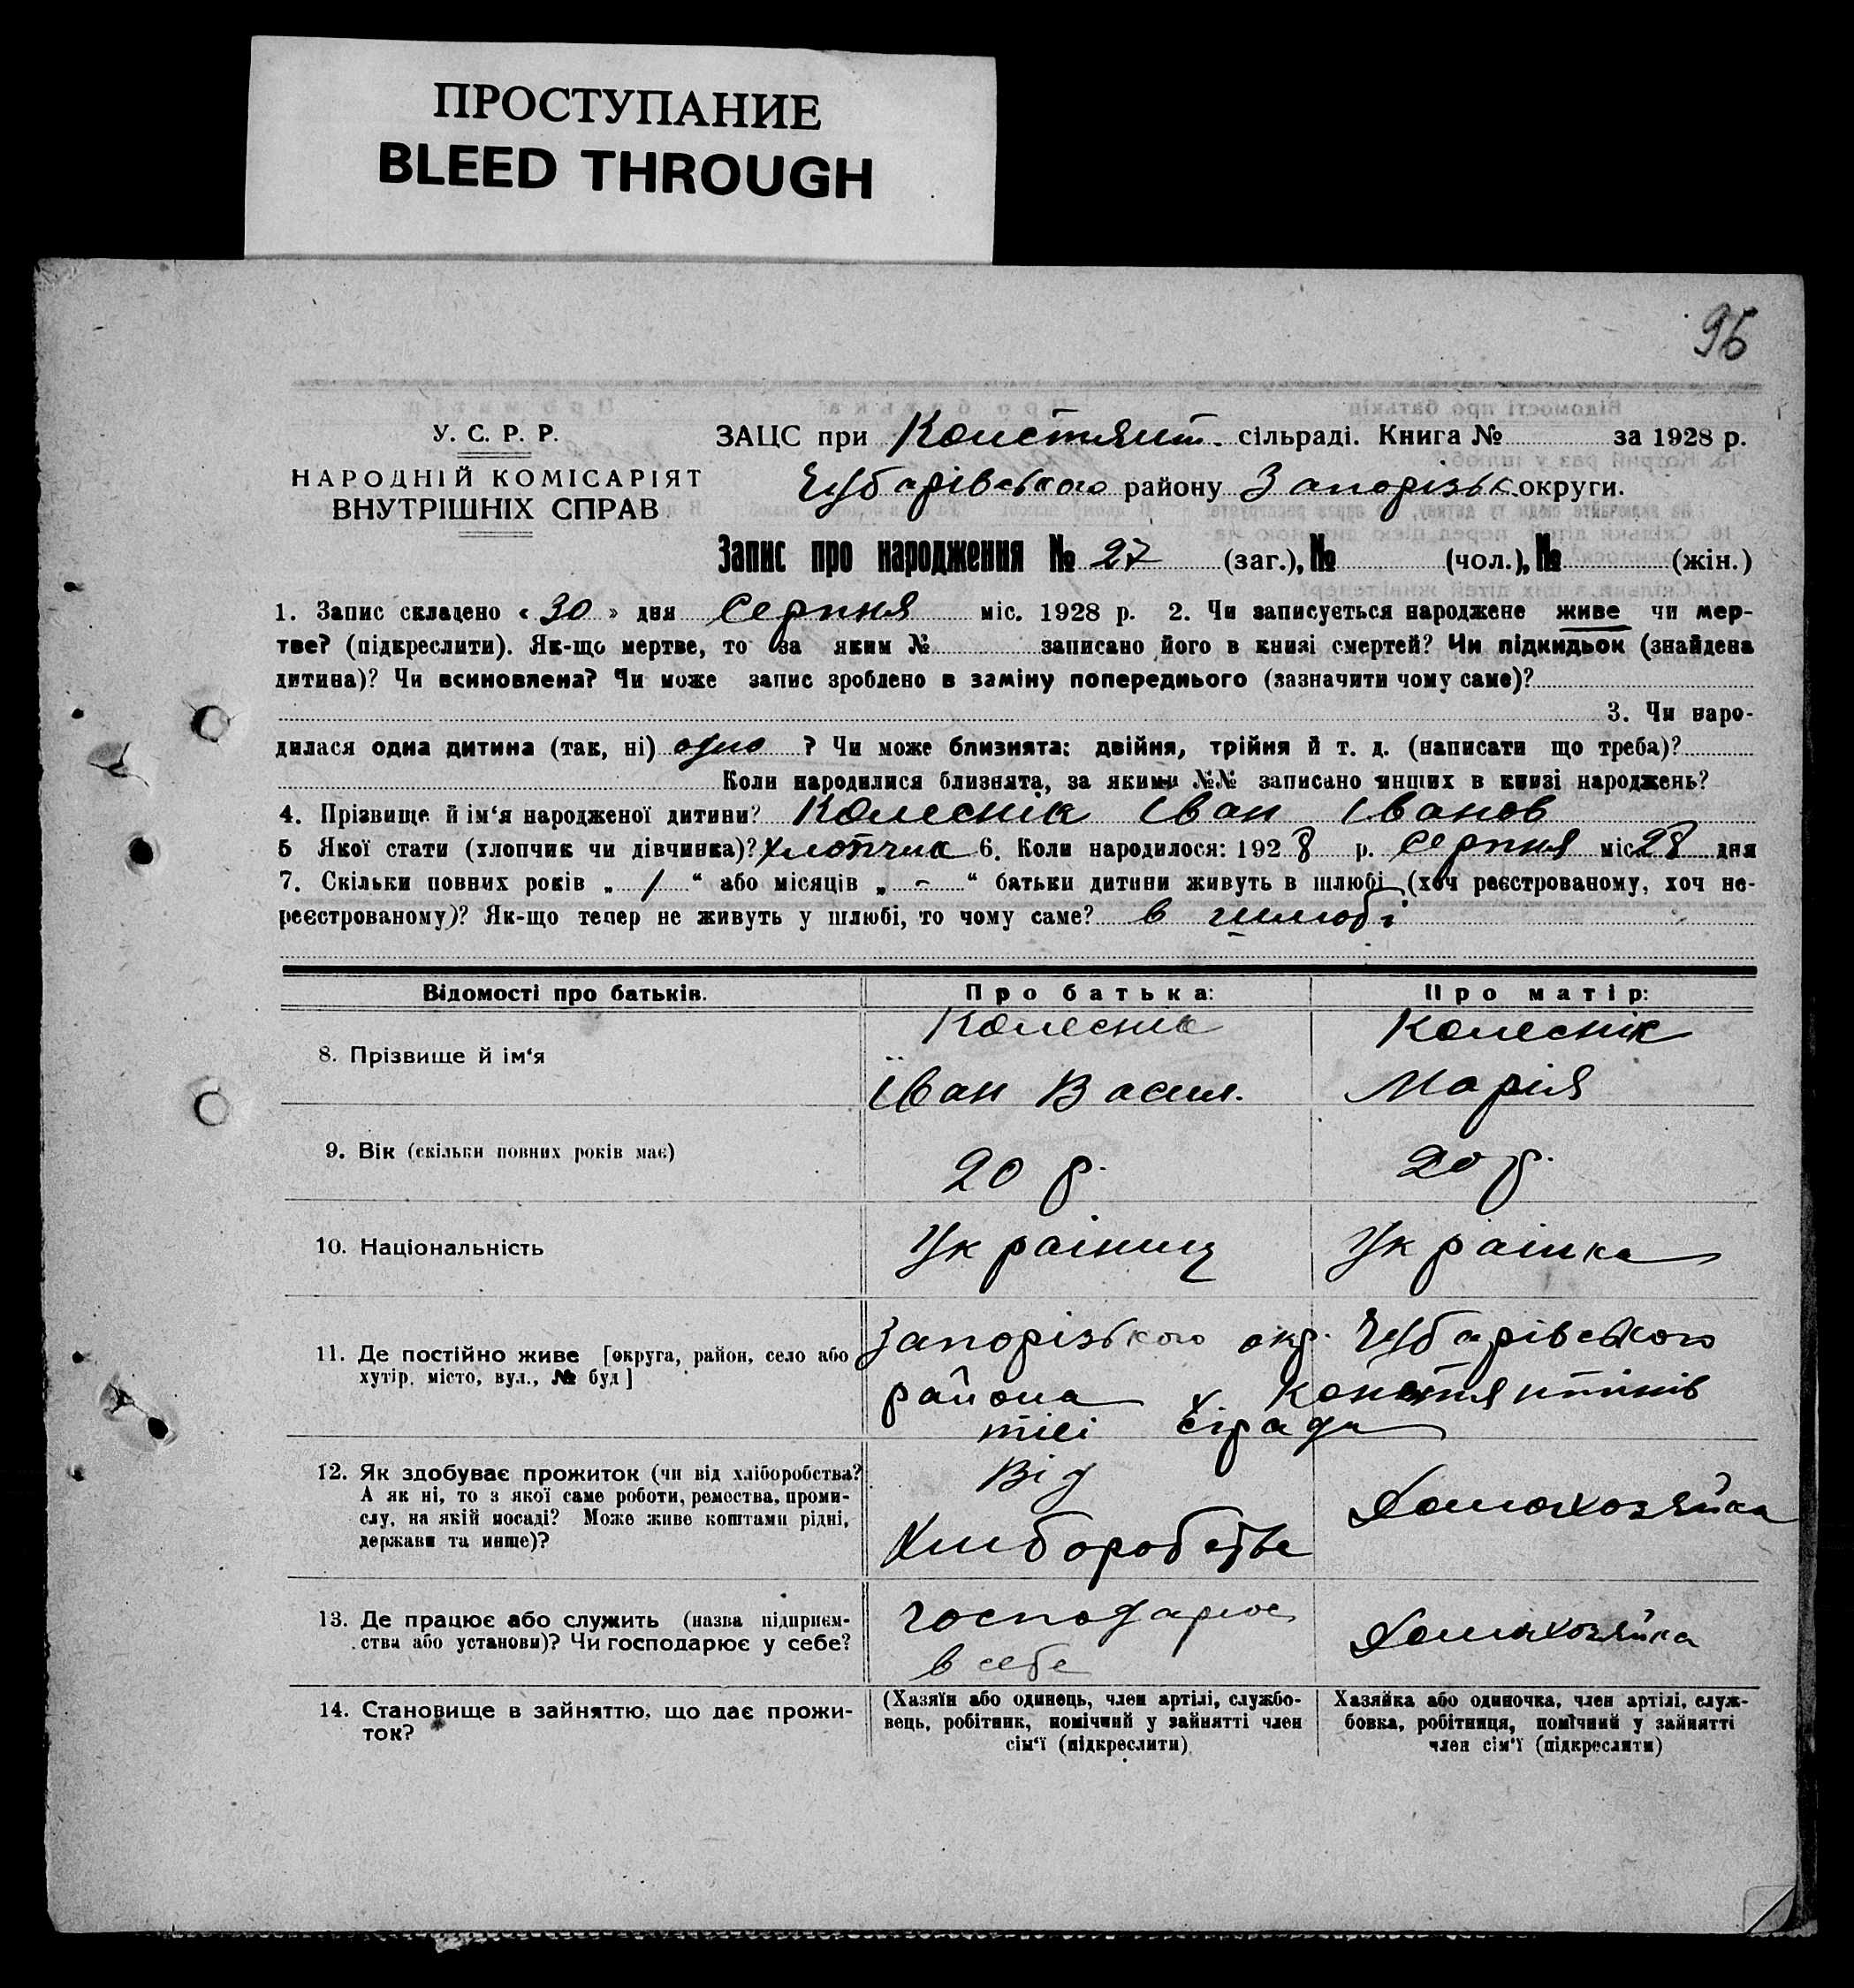 ПРОСТУПАНИЕ
BLEED THROUGH
96
У. С. Р. Р.
НАРОДНІЙ КОМІСАРІЯТ
ВНУТРІШНІХ СПРАВ
ЗАЦС при Констянт. сільраді. Книга № за 1928 р.
Чубарівського району Запорізьк. округи.
Запис про народження № 27 (заг.), № (чол.), № (жін.)
1. Запис складено « 30 » дня Серпня міс. 1928 р. 2. Чи записується народжене живе чи мер-
тве? (підкреслити). Як-що мертве, то за яким № записано його в книзі смертей? Чи підкидьок (знайдена
дитина)? Чи всиновлена? Чи може запис зроблено в заміну попереднього (зазначити чому саме)?
3. Чи наро-
дилася одна дитина (так, ні) одно ? Чи може близнята: двійня, трійня й т. д. (написати що треба)?
Коли народилися близнята, за якими №№ записано инших в книзі народжень?
4. Прізвище й ім‘я народженої дитини? Колеснік Іван Іванов
5 Якої стати (хлопчик чи дівчинка)? хлопчик 6. Коли народилося: 1928 р. Серпня міс 28 дня
7. Скільки повних років „ 1 “ або місяців „ - “ батьки дитини живуть в шлюбі (хоч реєстрованому, хоч не-
реєстрованому)? Як-що тепер не живуть у шлюбі, то чому саме? в шлюбі
Відомості про батьків.
Про батька:
Про матір:
8. Прізвище й ім‘я
Колеснік
Іван Васил.
Колеснік
Марія
9. Вік (скільки повних років має)
20 р.
20 р.
10. Національність
Украінец
Украінка
11. Де постійно живе [округа, район, село або
хутір, місто, вул., № буд]
Запорізького окр. Чубарівського
района Констянтинів
сірада
12. Як здобуває прожиток (чи від хліборобства?
А як ні, то з якої саме роботи, ремества, проми-
слу, на якій посаді? Може живе коштами рідні,
держави та инше)?
Від
Хлиборобства
Домохозяйка
13. Де працює або служить (назва підприєм-
ства або установи)? Чи господарює у себе?
господарює
в себе
Домохозяйка
14. Становище в зайняттю, що дає прожи-
ток?
(Хазяїн або одинець, член артілі, службо-
вець, робітник, помічний у зайнятті член
сім‘ї (підкреслити)
Хазяйка або одиночка, член артілі, служ-
бовка, робітниця, помічний у зайнятті
член сім‘ї (підкреслити)